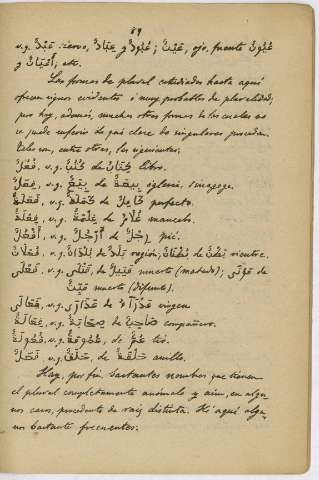 89
v.g. عَبْدٌ siervo, عِبَادٌ y عَبِيدٌ; عَيْنٌ, ojo, fuente عُيُونٌ
y أَعْيَانٌ, etc.
Las formas de plural estudiadas hasta aquí
ofrecen signos evidentes ó muy probables de pluralidad;
pero hay, además, muchas otras formas de las cuales no
se puede inferir de qué clase de singulares procedan.
Tales son, entre otras, las siguientes:
فُعُلٌ, v.g. كُتُبٌ de كِتَابٌ libro.
فِعَلٌ, v.g. بِيَعٌ de بِيعَةٌ iglesia, sinagoga.
فَعَلَةٌ, v.g. كَمَلَةٌ de كَامِلٌ perfecto.
فِعْلَةٌ, v.g. غِلْمَةٌ de غُلَامٌ mancebo.
أَفْعُلٌ, v.g. أَرْجُلٌ de رِجْلٌ pié.
فُعْلَانٌ, v.g. بُلْدَانٌ de بَلَدٌ region; بُطْنَانٌ de بَطْنٌ vientre.
فَعْلَى, v.g. قَتْلَى de قَتِيلٌ muerto (matado); مَوْتَى de
مَيِّتٌ muerto (difunto).
فَعَالَى, v.g. عَذَارَى de عَذْرَآءُ virgen
فِعَالَةٌ, v.g. صِحَابَةٌ de صَاحِبٌ compañero.
فُعُولَةٌ, v.g. عُمُومَةٌ de عَمٌّ tio.
فَعَلٌ, v.g. حَلَقٌ, de حَلْقَةٌ anillo.
Hay, por fin, bastantes nombres que tienen
el plural completamente anómalo y aun, en algu-
nos casos, procedente de raíz distinta. Hé aquí algu-
nos bastante frecuentes: